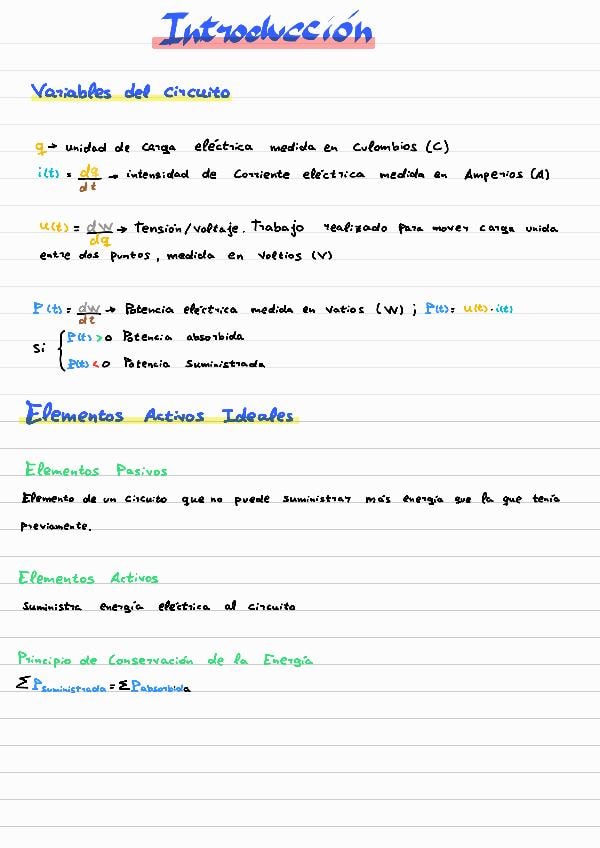 Introducción
Variables del circuito
q → unidad de carga eléctrica medida en Culombios (C)
i(t) = dq/dt → intensidad de corriente eléctrica medida en Amperios (A)
u(t) = dw/dq → Tensión/voltaje. Trabajo realizado para mover carga unida
entre dos puntos, medida en Voltios (V)
P(t) = dw/dt → Potencia eléctrica medida en Vatios (W); P(t) = u(t)·i(t)
Si { P(t) > 0 Potencia absorbida
P(t) < 0 Potencia Suministrada
Elementos Activos Ideales
Elementos Pasivos
Elemento de un circuito que no puede suministrar más energía que la que tenía
previamente.
Elementos Activos
Suministra energía eléctrica al circuito
Principio de Conservación de la Energía
Σ P suministrada = Σ P absorbida